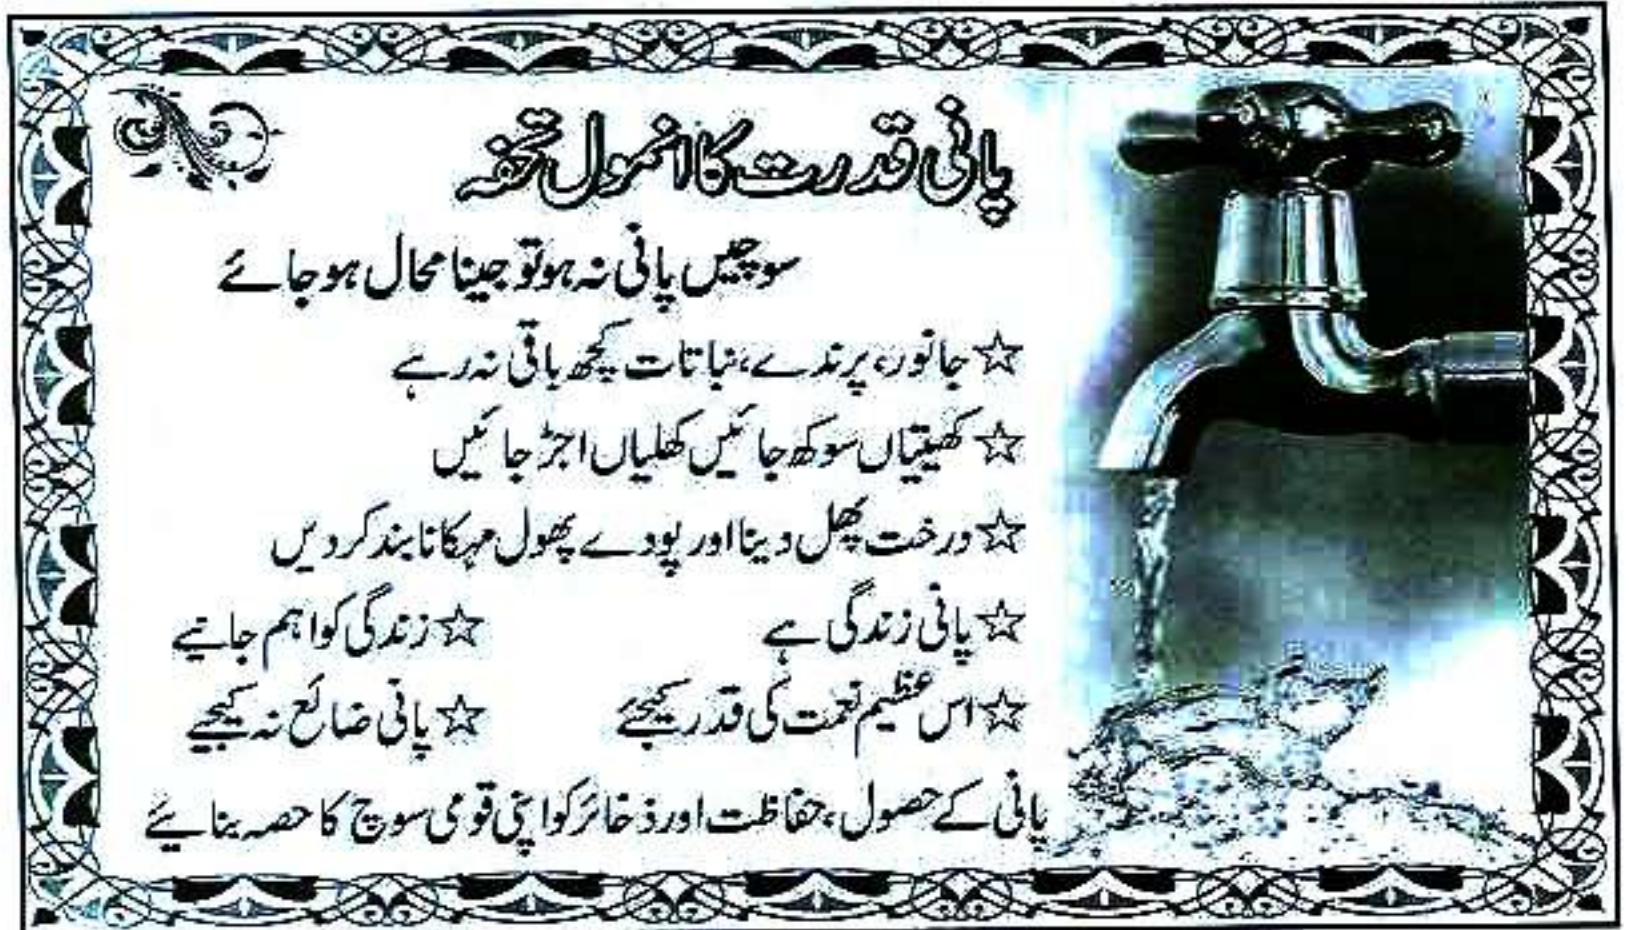 پانی قدرت کا انمول تحفہ
سوچیں پانی نہ ہو تو جینا محال ہو جائے
☆ جانور، پرندے، نباتات کچھ باقی نہ رہے
☆ کھیتیاں سوکھ جائیں کھلیاں اجڑ جائیں
☆ درخت پھل دینا اور پودے پھول مہکانا بند کر دیں
☆ پانی زندگی ہے ☆ زندگی کو اہم جانیے
☆ اس عظیم نعمت کی قدر کیجئے ☆ پانی ضائع نہ کیجیے
پانی کے حصول، حفاظت اور ذخائر کو اپنی قومی سوچ کا حصہ بنایئے